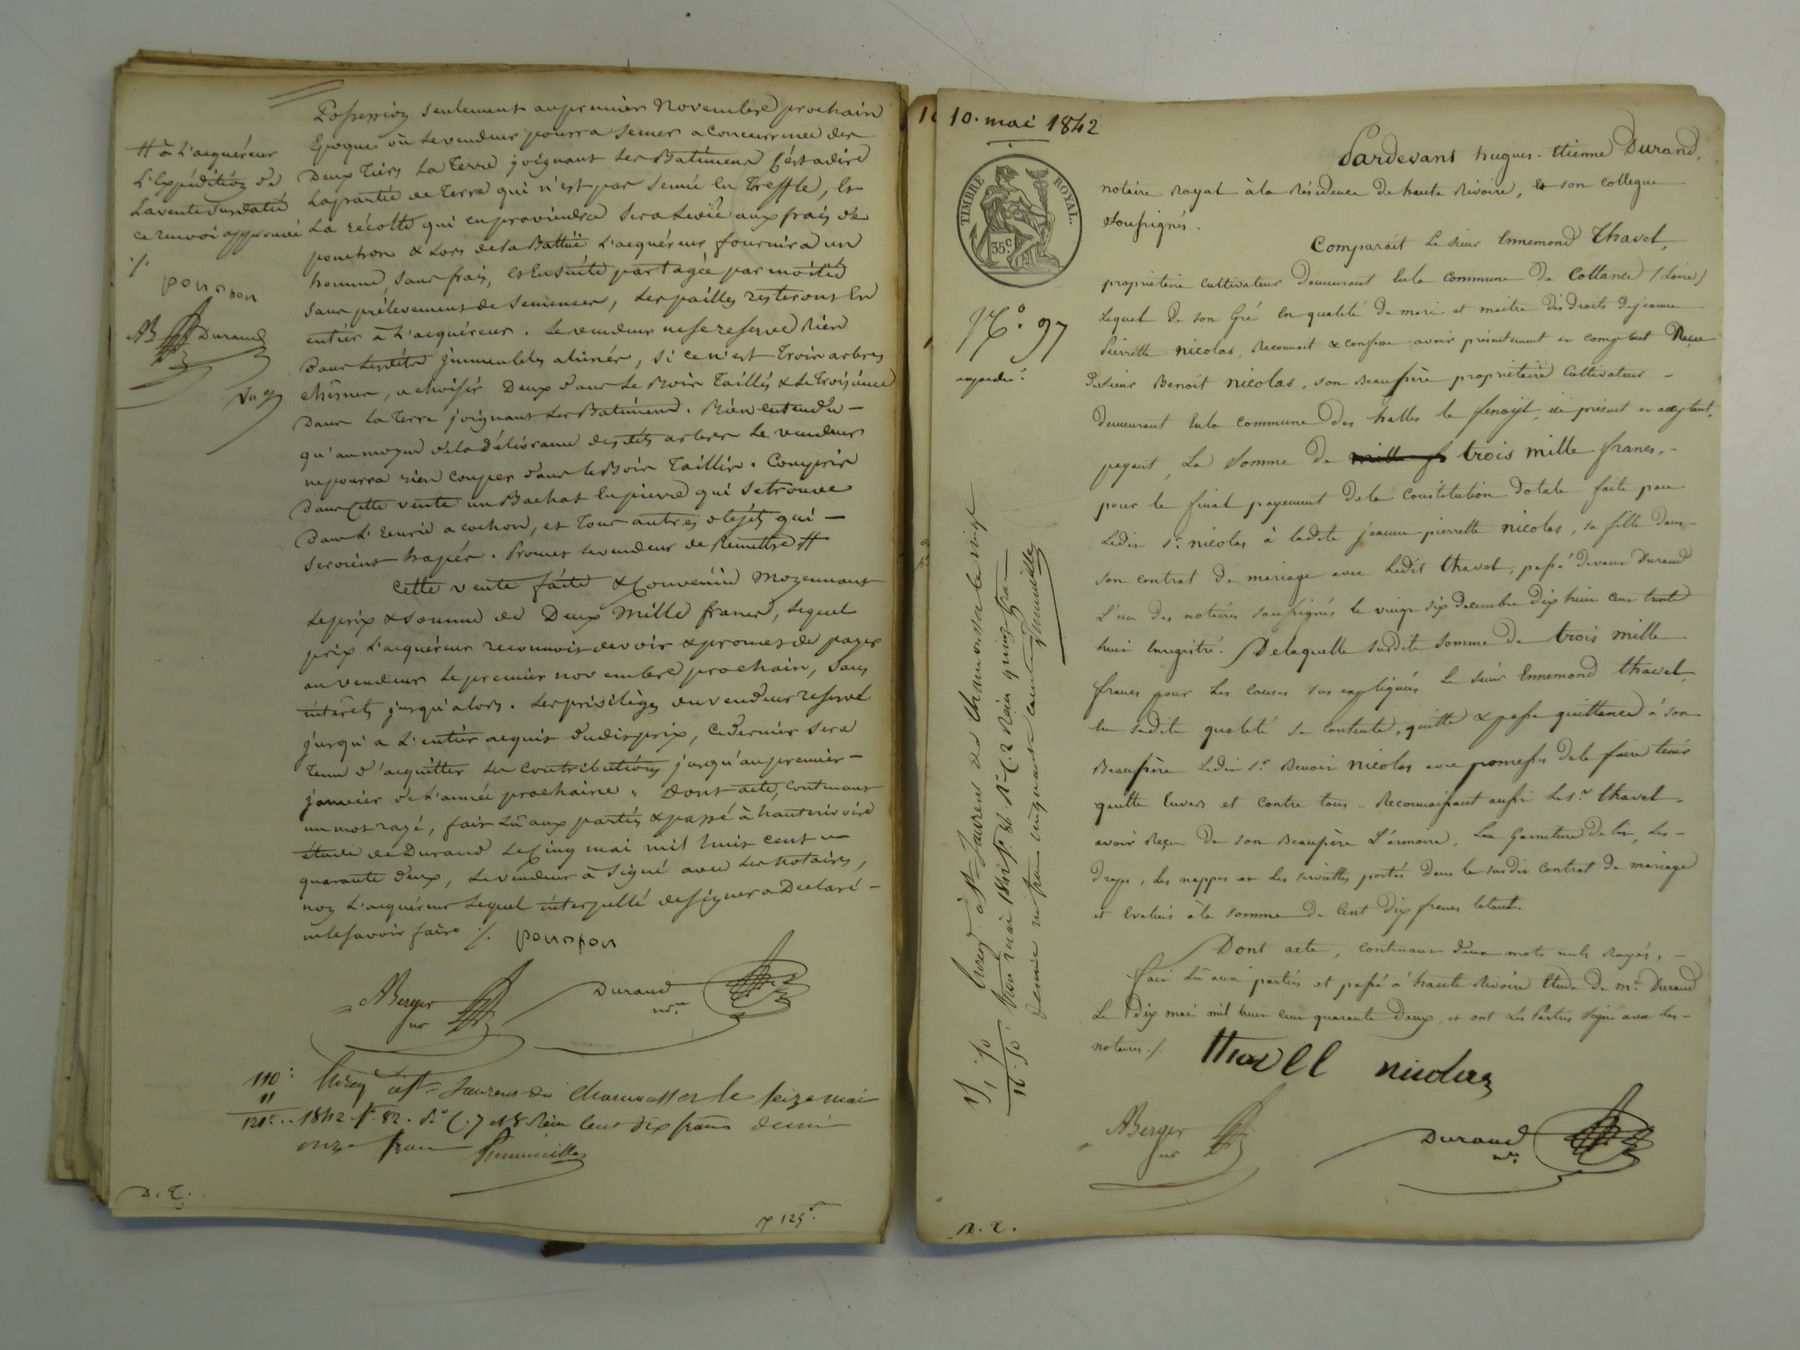 Possession seulement au premier Novembre prochain
Epoque où le vendeur pourra semer a concurrence des
Deux tiers la terre joignant les Batimens C'est adire
la partie de terre qui n'est pas semée en treffle, Et
La récolte qui en proviendra sera levée aux frais de
ponchon & Lors de la Battue L'acquéreur fournira un
homme, sans frais, et Ensuite partagée par moitié
sans prélevement de semences, Les pailles resteront En
entier à L'acquéreur. Le vendeur ne se reserve Rien
Dans Lesdits immeubles aliénés, si ce n'est trois arbres
chênes, a choisir Deux dans Le Bois taillis & Le troisième
Dans La terre joignant Les Batimens. Bien entendu
qu'au moyen de la délivrance desdits arbres Le vendeur
ne pourra rien couper dans le Bois taillis. Compris
Dans Cette vente un Bachat En pierre qui se trouve
Dans L'Ecurie a cochon, et tous autres objets qui
seroient trapés. Promet le vendeur de Remettre #
# à L'acquéreur
L'Expédition de
La vente susdatée
ce renvoi approuvé
./.
ponchon
AB Durand
Cette vente faite & Convenue Moyennant
Le prix & somme de Deux Mille francs, Lequel
prix L'acquéreur reconnois devoir & promet de payer
au vendeur Le premier novembre prochain, sans
intérêts jusqu'alors. Les privilèges du vendeur reservé
jusqu'a L'entier acquit dudit prix, Ce dernier sera
tenu d'acquitter Les Contributions jusqu'au premier
janvier de L'année prochaine. Dont acte, Contenant
un mot rayé, fait Lû aux parties & passé à hauterivoire
étude de Durand Le Cinq mai mil huit cent
quarante deux, Le vendeur à signé avec Les Notaires,
non L'acquéreur Lequel interpellé de signer a Declaré
ne le savoir faire ./. ponchon
ABerger
nre
Durand
nre.
110:
11
121:.. Enreg. à St. Laurent de Chamousset le seize mai
1842 f. 82. Ro. C. 7 et 8 Reçu Cent dix francs décime
onze francs
D. E.
10. mai 1842
TIMBRE ROYAL.
35 c
No. 97
expédié.
Pardevant hugues-Etienne Durand,
notaire Royal à la Résidence de haute Rivoire, & son collegue
soussignés.
Comparait Le sieur Ennemond Thavel,
propriétaire Cultivateur demeurant En la commune de Cottance (Loire)
Lequel de son Gré En qualité de mari et maitre des droits de jeanne
Pierrette nicolas, Reconnait & confesse avoir présentement et comptant Reçu
De sieur Benoit nicolas, son Beaufrère propriétaire Cultivateur
demeurant En la commune des halles le fenoyl ici présent et acceptant,
payant, La somme de mille f trois mille francs,
pour le final payement de la Constitution dotale faite par
Ledit sr. nicolas à ladite jeanne-pierrette nicolas, sa fille dans
son contrat de mariage avec Ledit thavel, passé devant Durand
L'un des notaires soussignés le vingt six decembre dix huit cent trente
huit Enregistré. De laquelle susdite somme de trois mille
francs pour Les causes sus expliquées Le sieur Ennemond thavel,
En sadite qualité se contente, quitte & passe quittance à son
Beaufrère Ledit sr. Benoit nicolas avec promesses de le faire tenir
quitte Envers et contre tous. Reconnaissant aussi Le sr. thavel
avoir Reçu de son Beaupère L'armoire, La Garniture de lit, Les
draps, Les nappes et Les serviettes portés dans le susdit Contrat de mariage
et Evalués à la somme de Cent dix francs le tout.
Dont acte, contenant deux mots nuls rayés,
fait Lû aux parties et passé à haute Rivoire Etude de me. Durand
Le dix mai mil huit cent quarante deux, et ont Les Parties signé avec Les
notaires ./.
thavel nicolas
ABerger
nre
Durand
nre.
Enreg. à St. Laurent de Chamousset le vingt
trois mai 1842 f. 86 Ro. C. 2 Reçu quinze francs
décime un franc cinquante centimes
15
1, 50
16. 50
D. E.